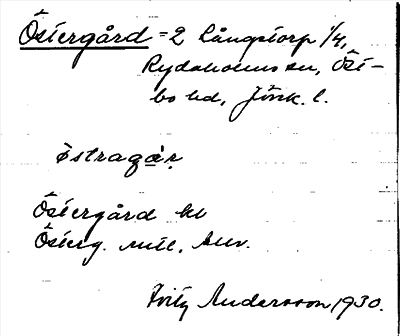 Östergård = 2 Långstorp 1/4,
Rydaholms sn, Öst-
bo hd, Jönk. l.
östragår
Östergård kl
Österg. mtl.
Fritz Andersson 1930.